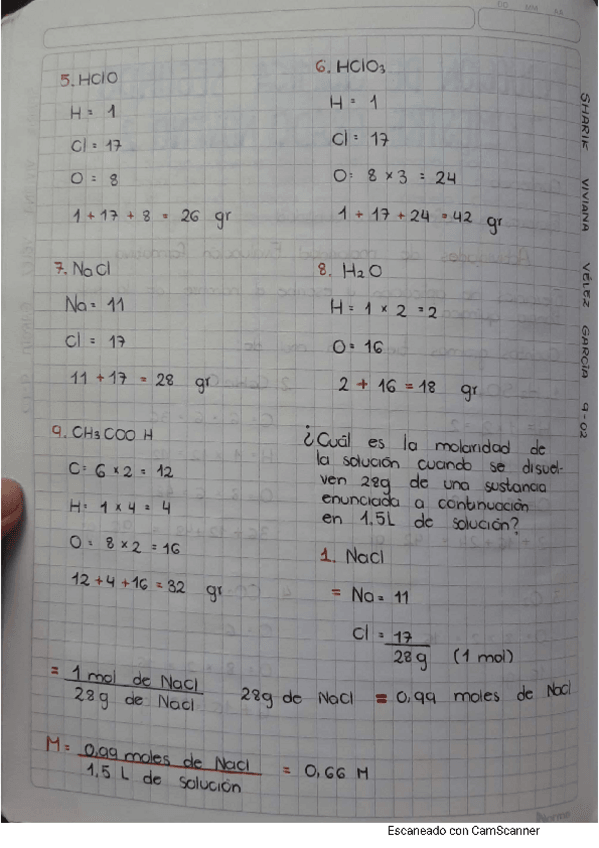 5. HClO
H = 1
Cl = 17
O = 8
1 + 17 + 8 = 26 gr
6. HClO3
H = 1
Cl = 17
O = 8 x 3 = 24
1 + 17 + 24 = 42 gr
7. NaCl
Na = 11
Cl = 17
11 + 17 = 28 gr
8. H2O
H = 1 x 2 = 2
O = 16
2 + 16 = 18 gr
9. CH3COO H
C = 6 x 2 = 12
H = 1 x 4 = 4
O = 8 x 2 = 16
12 + 4 + 16 = 32 gr
¿Cuál es la molaridad de
la solución cuando se disuel-
ven 28g de una sustancia
enunciada a continuación
en 1.5L de solución?
1. NaCl
= Na = 11
Cl = 17
28g (1 mol)
= 1 mol de NaCl
28g de NaCl 28g de NaCl = 0,99 moles de NaCl
M = 0,99 moles de NaCl
1,5 L de solución = 0,66 M
SHARIK VIVIANA VÉLEZ GARCÍA 9-02
Norma
Escaneado con CamScanner